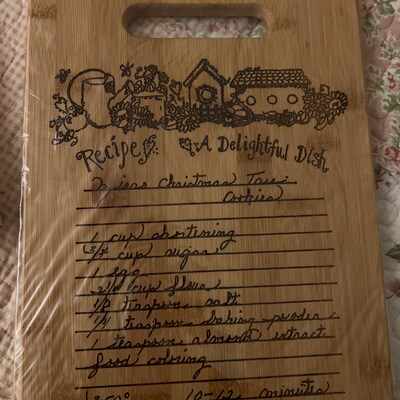 Recipe
A Delightful Dish
Christmas Tree
Cookies
1 cup shortening
3/4 cup sugar
1 egg
2 1/4 cup flour
1/2 teaspoon salt
1/4 teaspoon baking powder
1 teaspoon almond extract
food coloring
350° 10-12 minutes